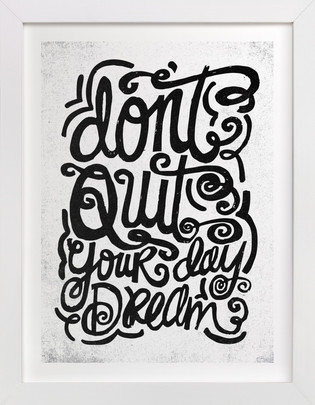 don't
Quit
your day
Dream